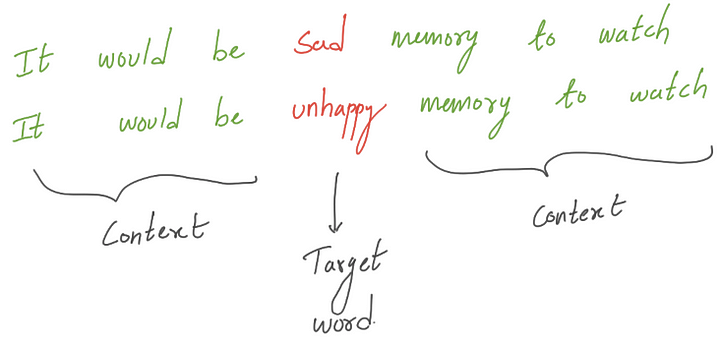 It would be sad memory to watch
It would be unhappy memory to watch
Context
Context
Target
word.